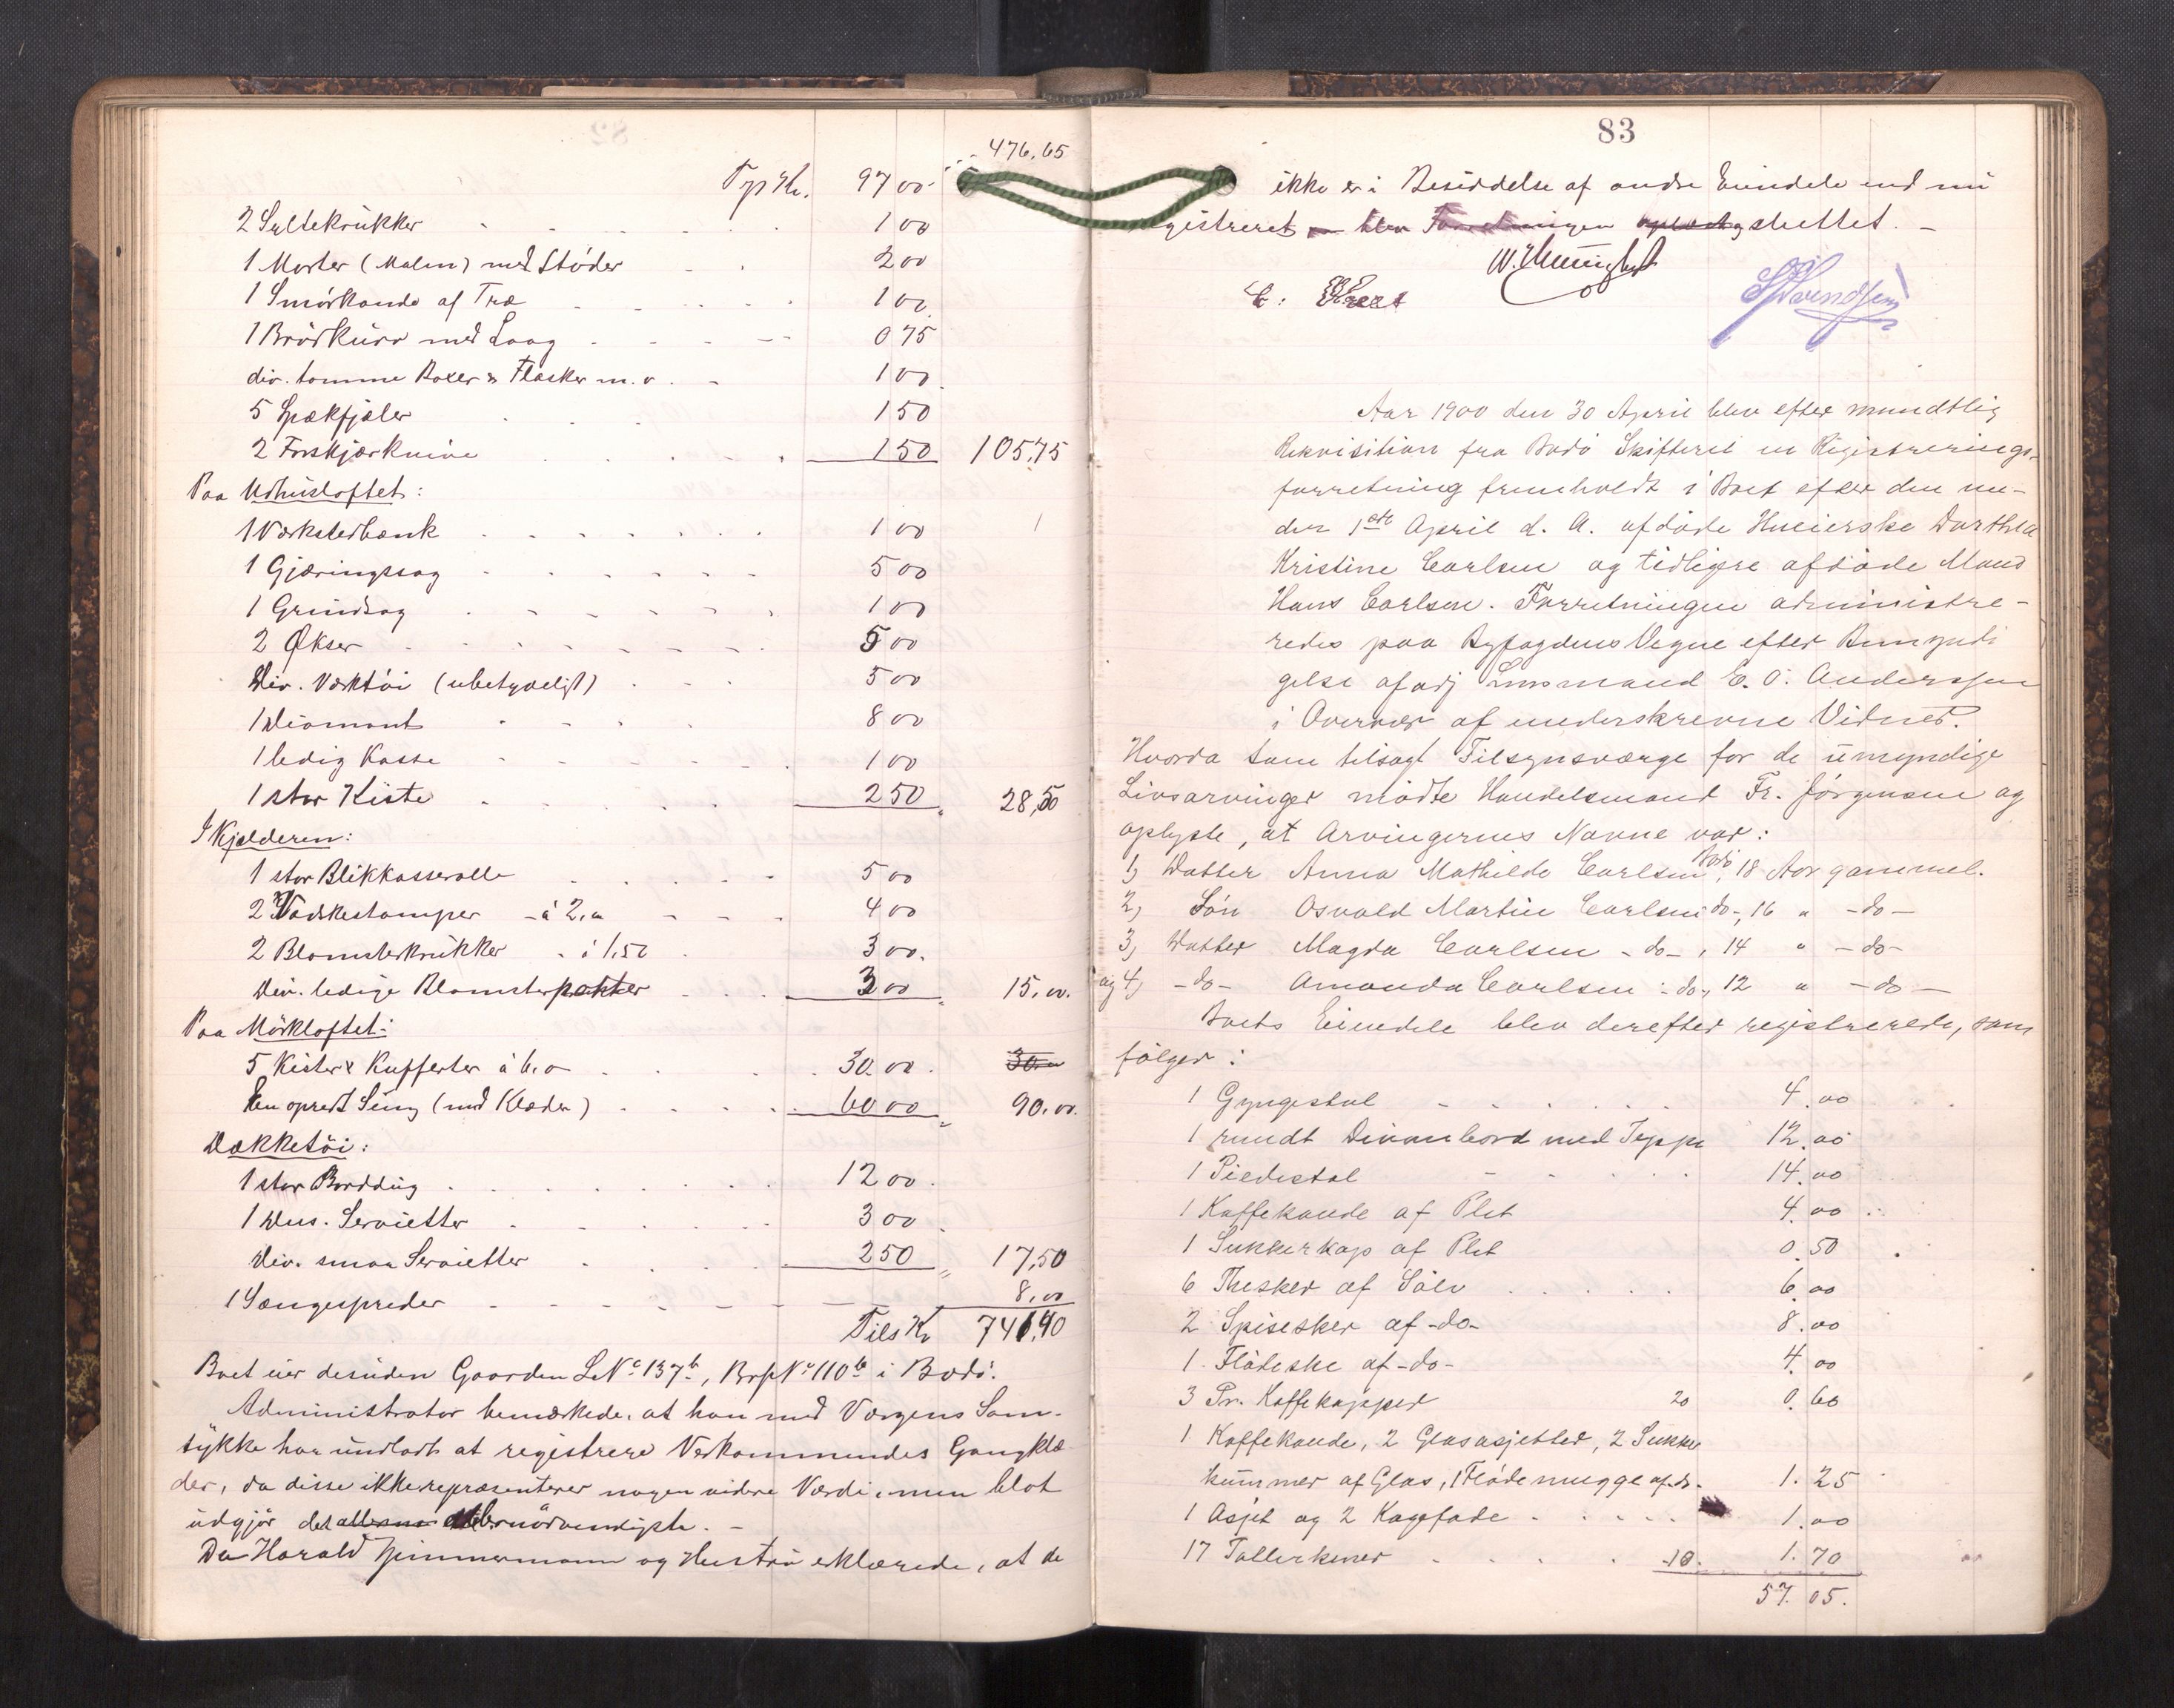 476,65
Trp Kr. 97 00
2 Syltekrukker 1 00
1 Morter (Malm) med Støder 2 00
1 Smørkande af Træ 1 00
1 Brødkurv med Laag 0 75
div. tomme Boxer & Flasker m.v. 1 00
5 Spækfjæler 1 50
2 Forskjærknive 1 50 105,75
Paa Udhusloftet:
1 Værkstedbænk 1 00
1 Gjæringssag 5 00
1 Grindsag 1 00
2 Økser 5 00
Div. Værktøi (ubetydeligt) 5 00
1 Diamant 8 00
1 ledig Kasse 1 00
1 stor Kiste 2 50 28,50
I Kjelderen:
1 stor Blikkasserolle 5 00
2 Vadskestamper à 2,00 4 00
2 Blomsterkrukker à 1,50 3 00
Div. ledige Blomsterpotter 3 00 15,00.
Paa Mørkloftet:
5 Kister & Kufferter à 6,00 30.00 30,00
En opredt Seng (med Klæder) 60 00 90,00.
Dækketøi:
1 stor Borddug 12 00
1 Dus. Servietter 3 00
Div. smaa Servietter 2 50 17,50
1 Sængespreder 8,00
Tils Kr 741,40
Boet eier desuden Gaarden LNo 137b, BrpNo 110b i Bodø.
Administrator bemærkede, at han med Værgens Sam-
tykke har undladt at registrere Vedkommendes Gangklæ
der, da disse ikke repræsenterer nogen videre Værdi, men blot
udgjør det allernødvendigste. -
Da Harald Zimmermann og Hustru erklærede, at de
83
ikke er i Besiddelse af andre Eiendele end nu
registreret blev Forretningen sluttet. -
Svendsen
Aar 1900 den 30 April blev efter mundtlig
Rekvisition fra Bodø Skifteret en Registrerings-
forretning fremholdt i Boet efter den un-
der 1ste April d. A. afdøde Huseierske Dorthea
Kristine Carlsen og tidligere afdøde Mand
Hans Carlsen. Forretningen administre-
redes paa Byfogdens Vegne efter Bemyndi
gelse af adj Lensmand E. O. Anderssen
i Overvær af underskrevne Vidner.
Hvorda som tilsagt Tilsynsværge for de umyndige
Livsarvinger mødte Handelsmand Fr. Jørgensen og
oplyste, at Arvingernes Navne var:
1) Datter Anna Mathilde Carlsen, Bodø, 18 Aar gammel.
2) Søn Osvald Martin Carlsen do-, 16 " -do-
3) Datter Magda Carlsen -do-, 14 " -do-
og 4) -do- Amanda Carlsen -do-, 12 " -do-
Boets Eiendele blev derefter registrerede, som
følger:
1 Gyngestol 4.00
1 rundt Divanbord med Teppe 12.00
1 Piedestal 14.00
1 Kaffekande af Plet 4.00
1 Sukkerkop af Plet 0.50
6 Theskeer af Sølv 6.00
2 Spiseskeer af -do- 8.00
1 Flødeske af -do- 4.00
3 Pr. Kaffekopper 20 0.60
1 Kaffekande, 2 Glasasjetter, 2 Sukker
kummer af Glas, 1 Flødemugge af do. 1.25
1 Asjet og 2 Kagefade 1.00
17 Tallerkener 10. 1.70
57.05.